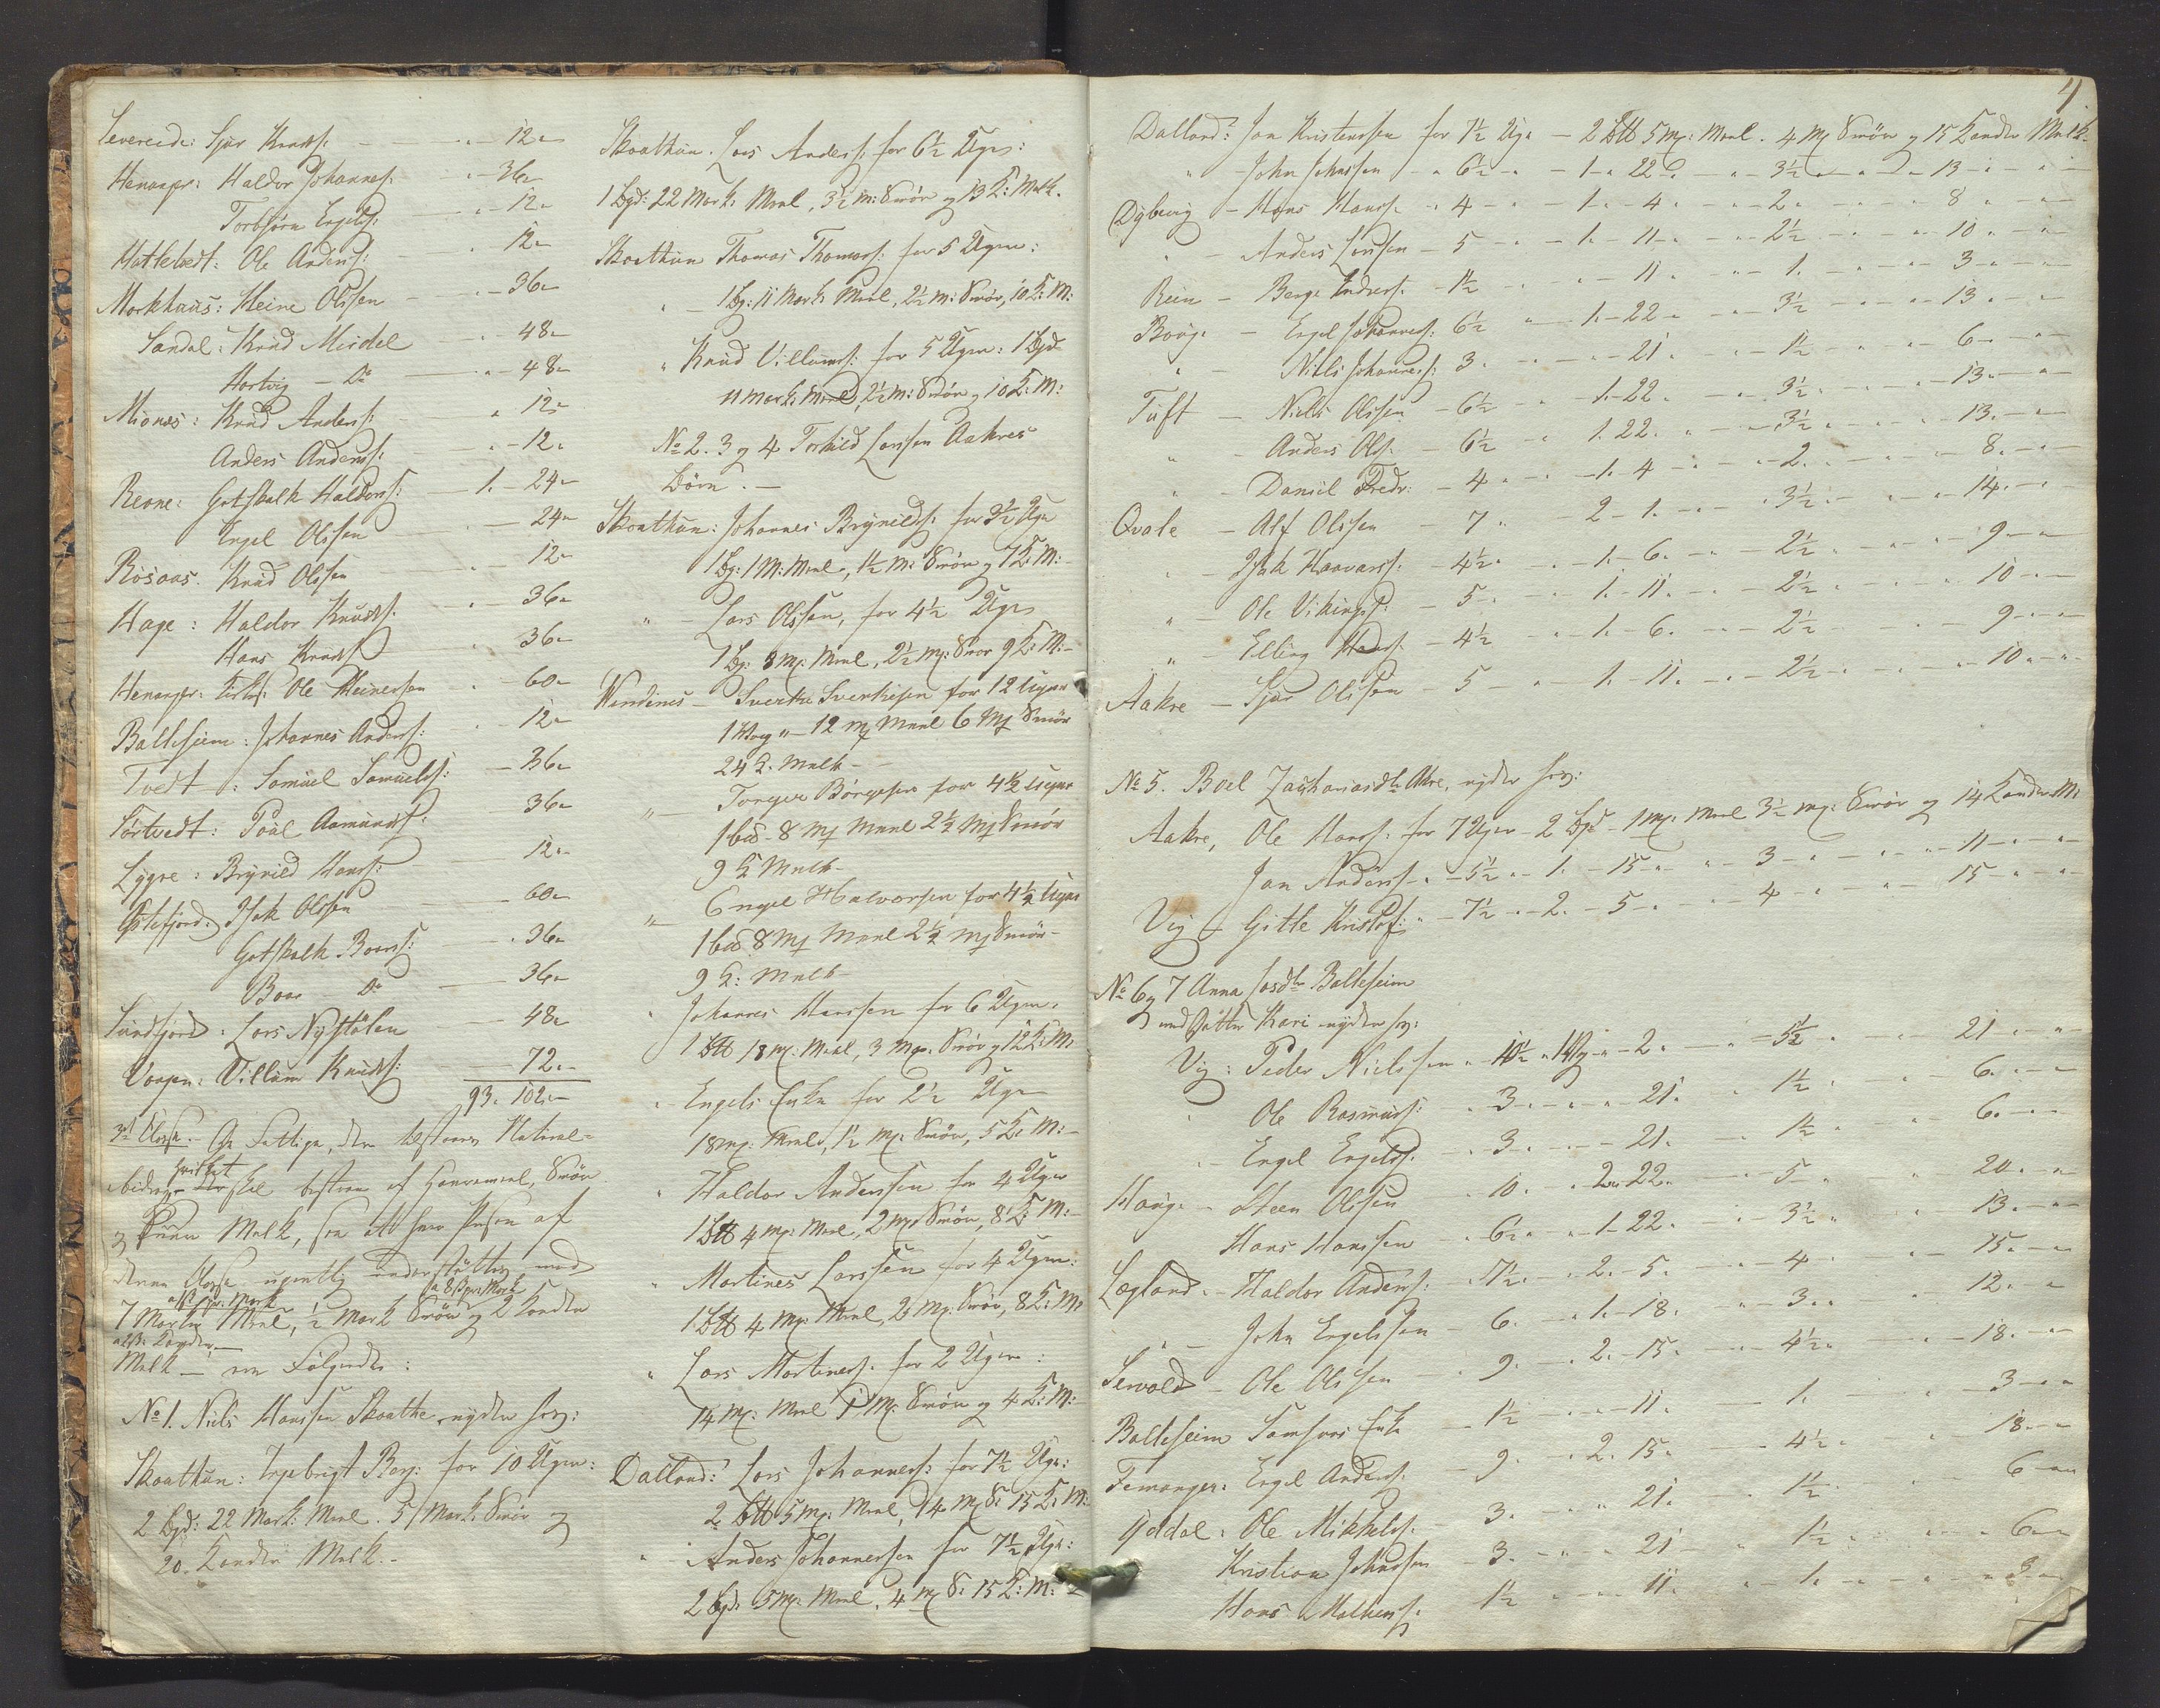 Sjur Knuds: " 12 "
Henanger: Haldor Johannes: " 36 "
Torbjörn Engels: " 12 "
Hatlebedt: Ole Anders: " 12 "
Morkhuus: Heine Olssen " 36 "
Sandal: Knud Meidel " 48 "
Hertvig - Do " 48 "
Mionæs: Knud Anders: " 12 "
Anders Anders: " 12 "
Reone: Gotskalk Haldors: 1. 24 "
Engel Olssen 24 "
Rosaas. Knud Olssen " 12 "
Hage: Haldor Knuds: " 36 "
Hans Knuds: " 36 "
Henanger: Ole Heinessen " 60 "
Balleseim: Johannes Anders: " 12 "
Tvedt: Samuel Samuels: " 36 "
Törtvedt: Poul Aamunds: 36 "
Lygre: Brynild Hans: 12 "
Isak Olssen 60 "
Gotskalk Baars: " 36 "
Baar - Do 36 "
Sundfjord: Lars Nystölen 48 "
Vaagen: Villum Knuds: 72 "
93. 102 "
3die Classe. De Fattige, der tilstaaes Natural-
bidrag hvilket skal bestaae af Havremeel, Smör
og Melk, saa at hver Person af
denne Classe ugentlig understöttes med
7 Marker Meel, ½ Mark Smör og 2 Kander
Melk - ere Fölgende:
No 1. Niels Hanssen Skaathe, nyder hos:
Skaathun: Ingebrigt Börg: for 10 Uger:
2 Bpd: 22 Mark: Meel. 5 Mark: Smör og
20. Kander Melk. -
Skaathun. Lars Anders: for 6½ Uger:
1 Bpd: 22 Mark: Meel, 3½ m: Smör og 13 K: Melk.
Skaathun Thomas Thomass: for 5 Uger:
" - 1 Bp: 11 Mark: Meel, 2½ m: Smör, 10 K: M:
" Knud Villums: for 5 Uger: 1 Bpd
11 Mark: Meel, 2½ m: Smör og 10 K: M:
No 2. 3 og 4 Torkild Larssen Aakres
Börn. -
Skaathun: Johannes Brynilds: for 3½ Uger
1 Bp: 1 M: Meel, 1½ m: Smör og 7 K: M:
" - Lars Olssen, for 4½ Uger
1 Bp: 8 mk: Meel, 2½ mk: Smör 9 K: M: -
Vindenes - Sverke Sverkesen for 12 Uger
1 Vog " - 12 mk Meel 6 mk Smör
24 K. Melk -
" Torger Börgesen for 4½ Uger
1 bd - 8 mk Meel 2½ mk Smör
9 K Melk -
" Engel Halvorsen for 4½ Uger
1 bd 8 mk Meel 2½ mk Smör -
9 K: Melk -
" Johannes Hanssen for 6 Uger.
1 18 mk: Meel, 3 mk: Smör og 12 K: M:
" - Engels Enke for 2½ Uger
18 mk: Meel, 1½ mk: Smör, 5 K: M: -
" Haldor Anderssen for 4 Uger
1 4 mk: Meel, 2 mk Smör, 8 K: M: -
" Martines Larssen for 4 Uger:
1 4 mk: Meel, 2 mk: Smör, 8 K: M:
" Lars Martines: for 2 Uger:
14 mk: Meel 1 M: Smör og 4 K: M: -
Dalland: Lars Johannes: for 7½ Uge:
2 5 mk: Meel, 4 mk S: 15 K: M:
" Anders Johannessen for 7½ Uge:
2 Bpd: 5 mk: Meel, 4 mk S: 15 K: M:
4.
Dalland: Jan Kristenssen for 7½ Uge - 2 5 mk: Meel. 4 mk Smör og 15 Kander Melk.
" - John Johnssen - " 6½ - " - 1 " 22 " - " - 3½ " - " 13 " - "
Dybevig - Hans Hans: " 4 - " - 1 " - 4 " - " 2 " - " 8 " - "
" - Anders Larssen - 5 - " - 1 " - 11 " - " 2½ " - " 10 " - "
Reen - Berge Enders: - 1½ " - 11 " - " 1. - " 3 " - "
Boug: - Engel Johannes: 6½ " 1. - 22 " - " 3½ - " 13 " - "
" - Nills Johannes: 3. " - " 21 " - " 1½ - " 6 " - "
Tuft - Niels Olssen - 6½ - " 1. - 22 " - " 3½ " - " 13 " - "
" - Anders Ols: - 6½ " 1. 22. " - 3½ " - " 13. - "
" - Daniel Fredr: - 4 " - 1. - 4 - " - 2. - " 8. - "
Qvale - Alf Olssen - 7 " 2 - 1. - " 3½ " - " 14. - "
" - Isak Haavars: - 4½ " - 1. - 6. - " 2½ " - " 9 - "
" - Ole Vikings: - 5 " - 1. - 11. - " 2½ " - " 10 " -
" Elling Hans: - 4½ " - 1. - 6. - " 2½ - " 9 - "
Aakre - Sjur Olssen - 5 - " - 1. - 11. - " 2½ - " 10 " - "
No 5. Boel Zachariasdtr Akre, nyder hos:
Aakre, Ole Hans: for 7 Uger - 2 Bpd - 1 mk: Meel 3½ mk: Smör og 14 Kander M:
Jan Anders: " - 5½ " - 1. - 15 - " - 3 - " - " 11 - " - "
Vig - Gitle Kristof: " - 7½ " - 2. - 5 - " - 4 - " - " 15 " - "
No 6 og 7 Anna Larsdtr Balleseim
med Datter Kari nyder hos:
Vig: Peder Nielssen " 10½ " 1 Vog " - 2. - " - 5½ " - 21 " - "
" Ole Rasmus: " 3 " - " 21. " 1½ " - 6. " - "
" - Engel Engels: - " 3 - " - 21. - " 1½ " - 6. - "
Haug: - Steen Olssen " 10. " 2 " 22. - " 5 " - " 20. - "
Hans Hanssen " 6½ " 1 - 22. - " 3½ " - 13. - "
Lægland. - Haldor Anders: " 7½ " - 2. - 5. - " 4 - " 15. - "
" - John Engelssen - 6. - " 1. - 18. - " 3. " - 12. - "
Sævold - Ole Olssen - " 9. - " 2. - 15 " - " 4½ " - " 18. - "
Balleseim Samsons Enke - 1½ - " - 11. - 1. - " - 3 - "
Femanger: Engel Anders: - 9. " 2. 15. - 4½ " - 18. - "
Gjödal: Ole Mikkels: - 3. - " 21. " 1½ " - 6 - "
Kristian Johnssen - 3. - " 21 - " 1½ " - " 6 - "
Hans Mathias: 1½ " - 11. " 1. - " 3 - "